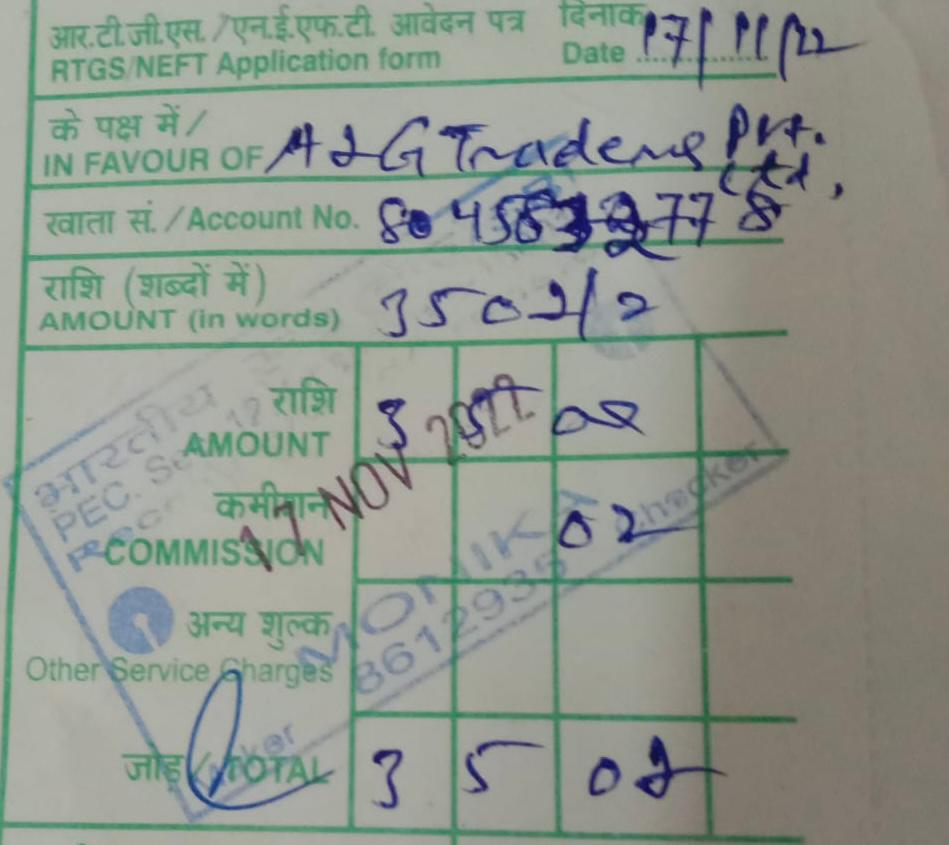 आर.टी.जी.एस. /एन.ई.एफ.टी. आवेदन पत्र दिनाक
RTGS/NEFT Application form Date 17/11/22
के पक्ष में/
IN FAVOUR OF A&G Traders Pvt. Ltd.
खाता सं./Account No.
राशि (शब्दों में)
AMOUNT (in words) 3502/2
राशि
AMOUNT 3 5 00
17 NOV 2022
कमीशन
COMMISSION 02
अन्य शुल्क
Other Service Charges
जोड़/TOTAL 3 5 02
भारतीय
PEC. Sec 17
MONIKA
8612935 Checker